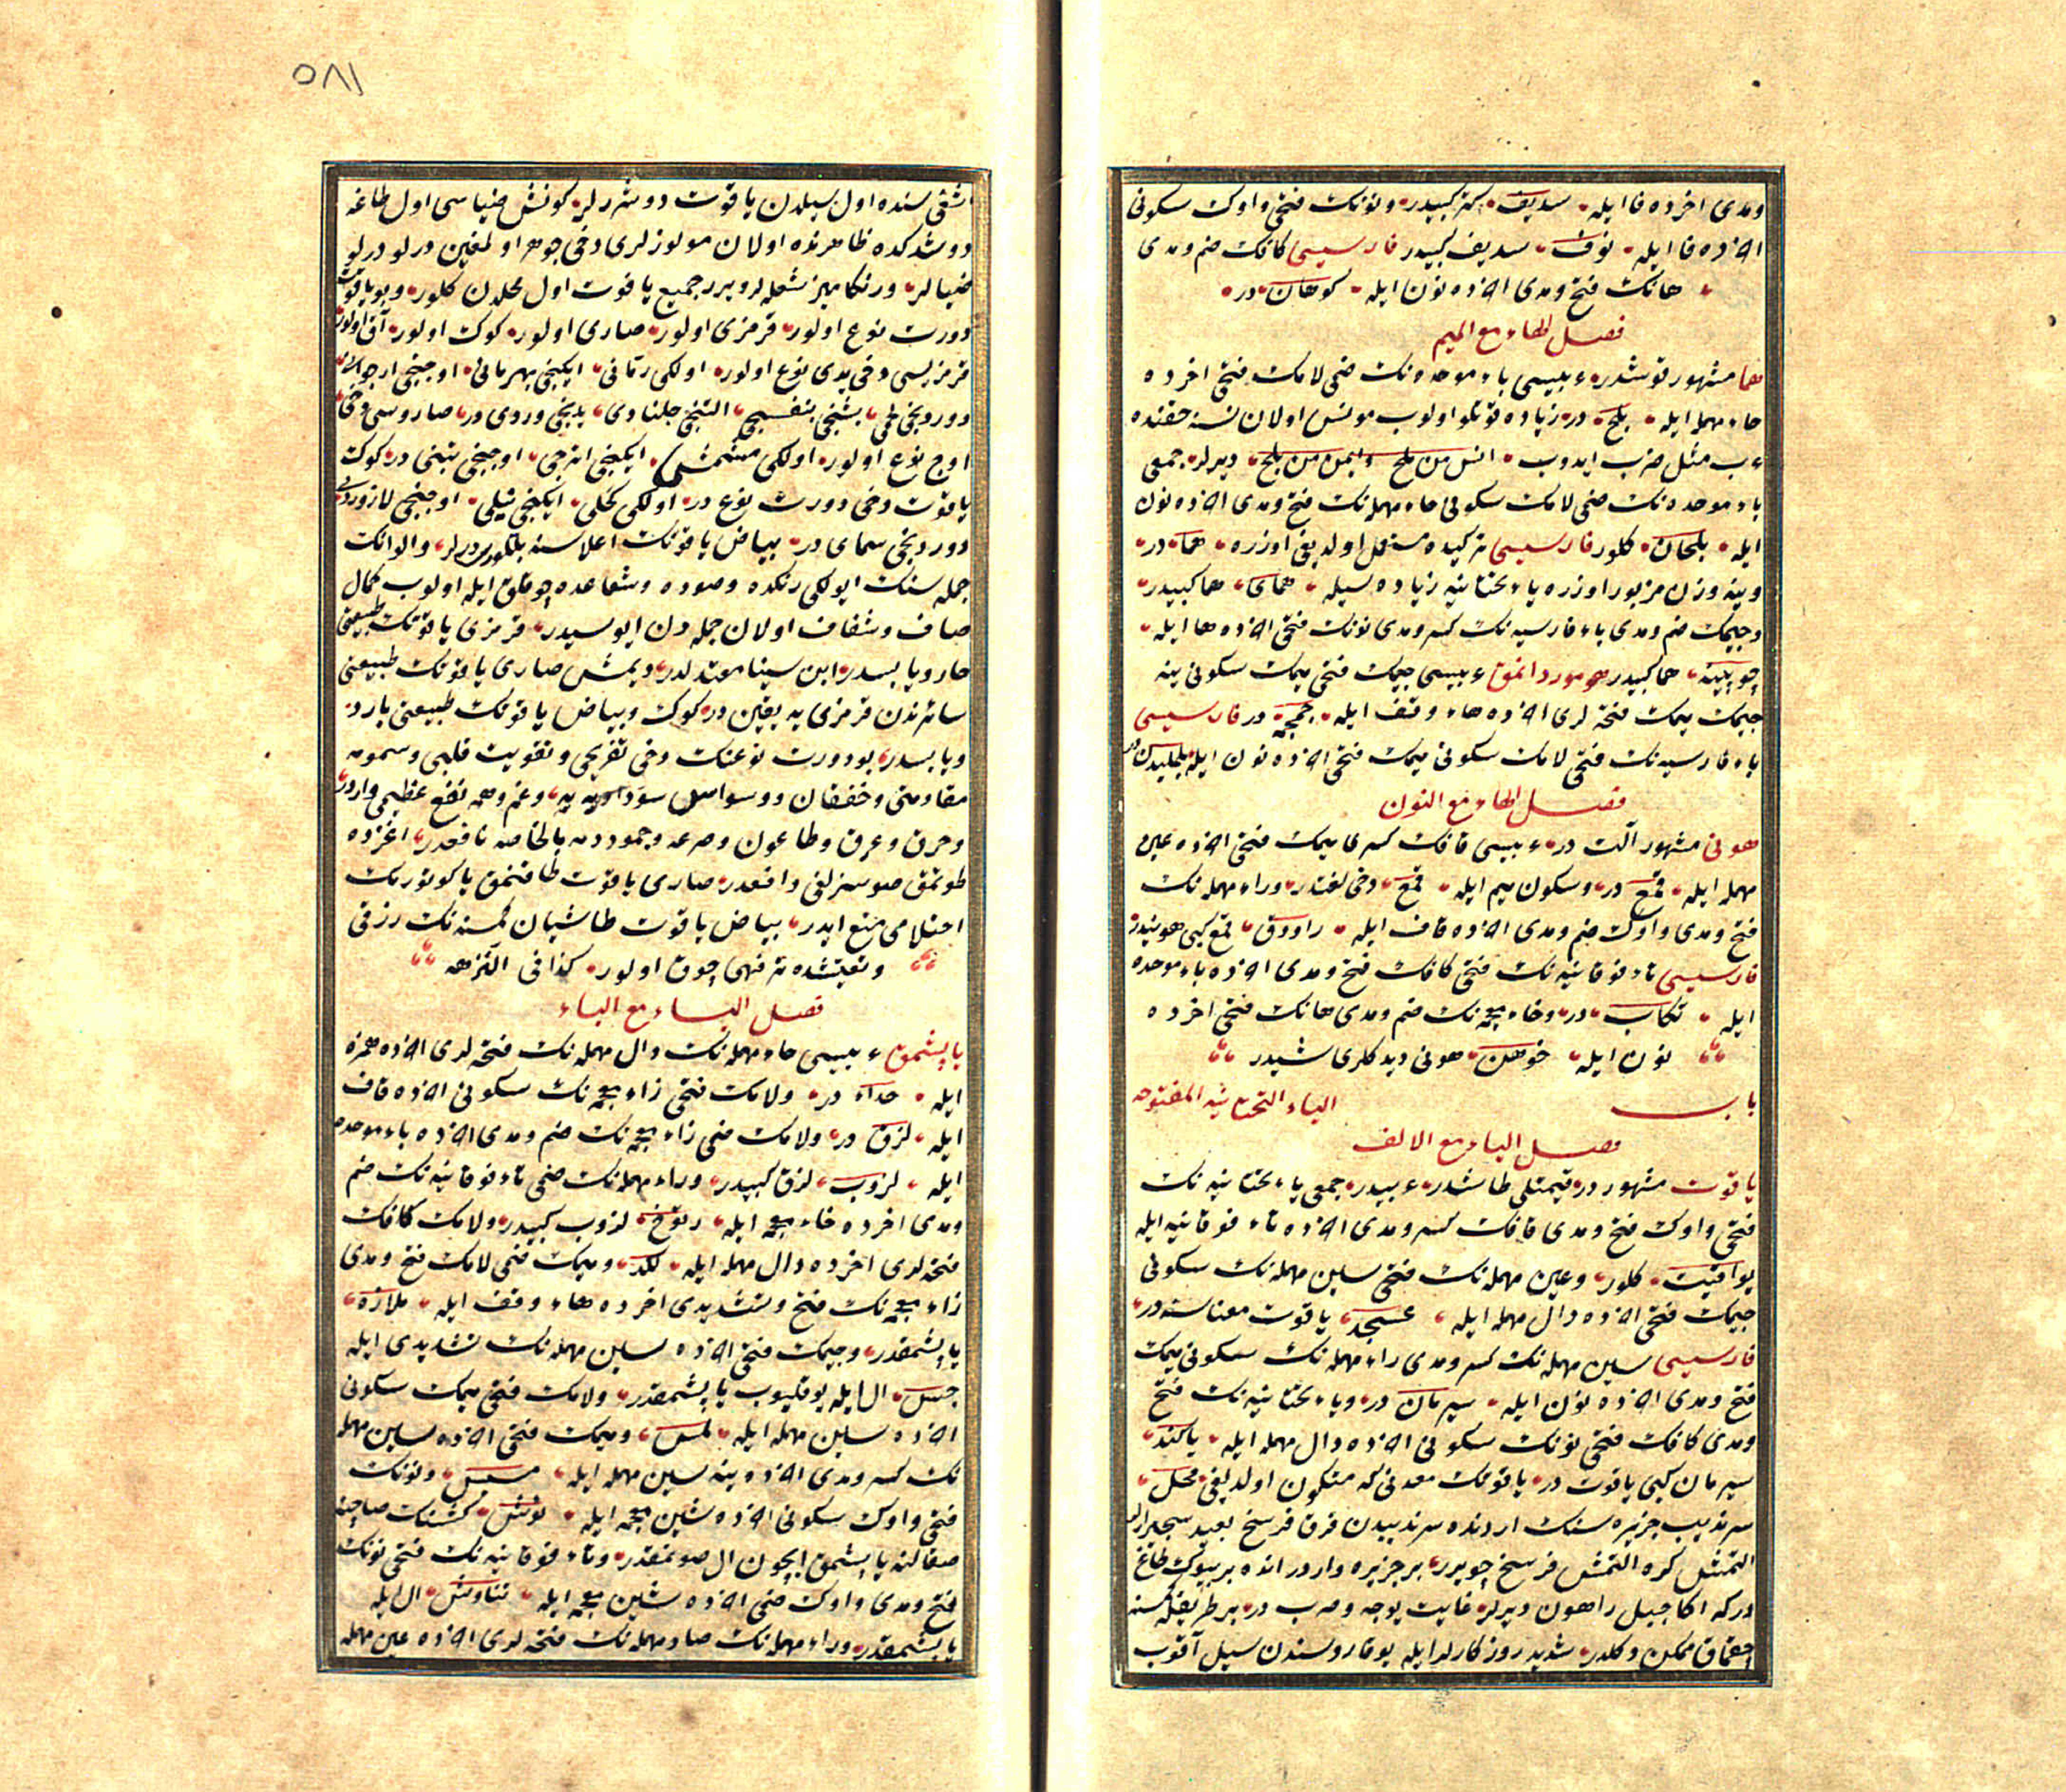 ومدی اخرده فا ایله سدیف کترکبیدر ونونك فتحی واوك سکونی
اخرده فا ایله نوف سدیف کبیدر فارسیسی کافك ضم ومدی
هانك فتح ومدی اخرده نون ایله کوهان در
فصل الهاء مع المیم
هما مشهور قوشدر عربیسی باء موحده نك ضمی لامك فتحی اخرده
حاء مهمله ایله بلح در زیاده قوتلو اولوب مونس اولان نسنه حقنده
عرب مثل ضرب ایدوب انس من بلح وایمن من بلح دیرلر جمعی
باء موحده نك ضمی لامك سکونی حاء مهمله نك فتح ومدی اخرده نون
ایله بلحان کلور فارسیسی ترکیده مستعمل اولدیغی اوزره هما در
وینه وزن مزبور اوزره یاء تحتانیه زیاده سیله همای هما کبیدر
وجیمك ضم ومدی یاء فارسیه نك کسر ومدی نونك فتحی اخرده ها ایله
هما کبیدر هوموردانمق عربیسی جیمك فتحی میمك سکونی ینه
جیمك میمك فتحه لری اخرده هاء وقف ایله جمجمه در فارسیسی
باء فارسیه نك فتحی لامك سکونی میمك فتحی اخرده نون ایله
فصل الهاء مع النون
هونی مشهور آلت در عربیسی قافك کسری میمك فتحی اخرده عین
مهمله ایله قمع در وسکون میم ایله قمع دخی لغتدر وراء مهمله نك
فتح ومدی واوك ضم ومدی اخرده قاف ایله راووق قمع کبی هونیدر
فارسیسی تاء فوقانیه نك فتحی کافك فتح ومدی اخرده باء موحده
ایله تکاب در وخاء معجمه نك ضم ومدی هانك فتحی اخرده
نون ایله خوهن هونی دیدکلری شیدر
باب الیاء التحتانیه المفتوحه
فصل الیاء مع الالف
یاقوت مشهور در قیمتلی طاشدر عربیدر جمعی یاء تحتانیه نك
فتحی واوك فتح ومدی قافك کسر ومدی اخرده تاء فوقانیه ایله
یواقیت کلور وعین مهمله نك فتحی سین مهمله نك سکونی
جیمك فتحی اخرده دال مهمله ایله عسجد یاقوت معناسنه در
فارسیسی سین مهمله نك کسر ومدی راء مهمله نك سکونی میمك
فتح ومدی اخرده نون ایله سیرمان در ویاء تحتانیه نك فتح
ومدی کافك فتحی نونك سکونی اخرده دال مهمله ایله یاکند
سیرمان کبی یاقوت در یاقوتك معدنی که متکون اولدیغی محل
سرندیب جزیره سنك اردنده سرندیبدن قرق فرسخ بعید
التمش کره التمش فرسخ بر جزیره واردر انده بر بیوك طاغ
درکه اکا جبل راهون دیرلر غایت یوجه وصرب در بر طریقله کمسنه
چقماق ممکن دکلدر شدید روزکارلر ایله یوقاروسندن سیل آقوب
٥٨١
اشقی سنده اول سیلدن یاقوت دوشررلر کونش ضیاسی اول طاغه
دوشدکده ظاهرنده اولان مولوزلری دخی جوهر اولمغین درلو درلو
ضیالر ورنکامیز شعله لر ویرر جمیع یاقوت اول محلدن کلور وبو یاقوت
دورت نوع اولور قرمزی اولور صاری اولور کوك اولور آق اولور
قرمزیسی دخی یدی نوع اولور اولکی رمّانی ایکنجی بهرمانی اوچنجی ارجوانی
دوردنجی لحمی بشنجی بنفسجی التنجی جلناری یدنجی وردی در صاروسی دخی
اوچ نوع اولور اولکی مشمشی ایکنجی اترجی اوچنجی تبنی در کوك
یاقوت دخی دورت نوع در اولکی کحلی ایکنجی نیلی اوچنجی لازوردی
دوردنجی سمای در بیاض یاقوتك اعلاسنه بلّور دیرلر والوانك
جمله سنك ایولکی رنکده وصوده وشعاعده چوقلق ایله اولوب کمال
صاف وشفاف اولان جمله دن ایوسیدر قرمزی یاقوتك طبیعتی
حار ویابسدر ابن سینا معتدلدر دیمش صاری یاقوتك طبیعتی
سائرندن قرمزی یه یقین در کوك وبیاض یاقوتك طبیعتی بارد
ویابسدر بو دورت نوعنك دخی تفریحی وتقویت قلبی وسمومه
مقاومتی وخفقان ووسواس سوداویه یه وغم وهمه نفع عظیمی واردر
وحرق وعرق وطاعون وصرعه وجمود دمه بالخاصه نافعدر اغزده
طوتمق صوسزلغی دافعدر صاری یاقوت طاقنمق یا کوتورمك
احتلامی منع ایدر بیاض یاقوت طاشیان کمسنه نك رزقی
وتعیشده ترفهی چوق اولور کذا فی النزهه
فصل الیاء مع الباء
یاپشمق عربیسی حاء مهمله نك دال مهمله نك فتحه لری اخرده همزه
ایله حداء در ولامك فتحی زاء معجمه نك سکونی اخرده قاف
ایله لزق در ولامك ضمی زاء معجمه نك ضم ومدی اخرده باء موحده
ایله لزوب لزق کبیدر وراء مهمله نك ضمی تاء فوقانیه نك ضم
ومدی اخرده خاء معجمه ایله رتوخ لزوب کبیدر ولامك کافك
فتحه لری اخرده دال مهمله ایله لکد ومیمك ضمی لامك فتح ومدی
زاء معجمه نك فتح وتشدیدی اخرده هاء وقف ایله ملازه
یاپشمقدر وجیمك فتحی اخرده سین مهمله نك تشدیدی ایله
جس ال ایله یوقلیوب یاپشمقدر ولامك فتحی میمك سکونی
اخرده سین مهمله ایله لمس ومیمك فتحی اخرده سین مهمله
نك کسر ومدی اخرده ینه سین مهمله ایله مسیس ونونك
فتحی واوك سکونی اخرده شین معجمه ایله نوش کمسنك صاچنه
صقالنه یاپشمق ایچون ال صونمقدر وتاء فوقانیه نك فتحی نونك
فتح ومدی واوك ضمی اخرده شین معجمه ایله تناوش ال ایله
یاپشمقدر وراء مهمله نك صاد مهمله نك فتحه لری اخرده عین مهمله